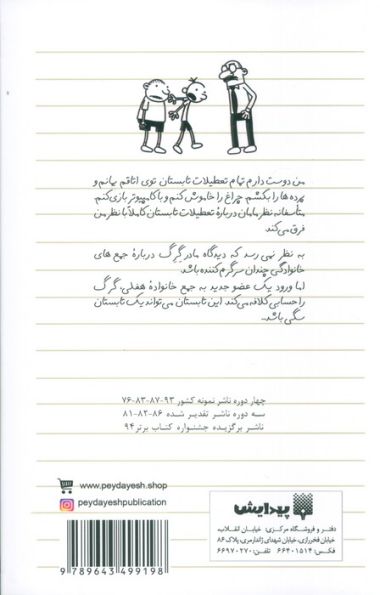 من دوست دارم تمام تعطیلات تابستان توی اتاقم بمانم و
پرده‌ها را بکشم. چراغ را خاموش کنم و با کامپیوتر بازی کنم.
متأسفانه، نظر مامان دربارهٔ تعطیلات تابستان کاملاً با نظر من
فرق می‌کند.
به نظر نمی‌رسد که دیدگاه مادر گرگ درباره جمع های
خانوادگی چندان سرگرم‌کننده باشد.
اما ورود یک عضو جدید به جمع خانوادهٔ هفلی، گرگ
را حسابی کلافه می‌کند. این تابستان می‌تواند یک تابستان
سگی باشد.
چهار دوره ناشر نمونه کشور ۹۳-۸۷-۸۳-۷۶
سه دوره ناشر تقدیر شده ۸۶-۸۲-۸۱
ناشر برگزیده جشنواره کتاب برتر ۹۴
www.peydayesh.shop
peydayeshpublication
9 789643 499198
پیدایش
دفتر و فروشگاه مرکزی: خیابان انقلاب،
خیابان فخررازی، خیابان شهدای ژاندارمری، پلاک ۸۶
فکس: ۶۶۴۰۱۵۱۴ تلفن: ۶۶۹۷۰۲۷۰